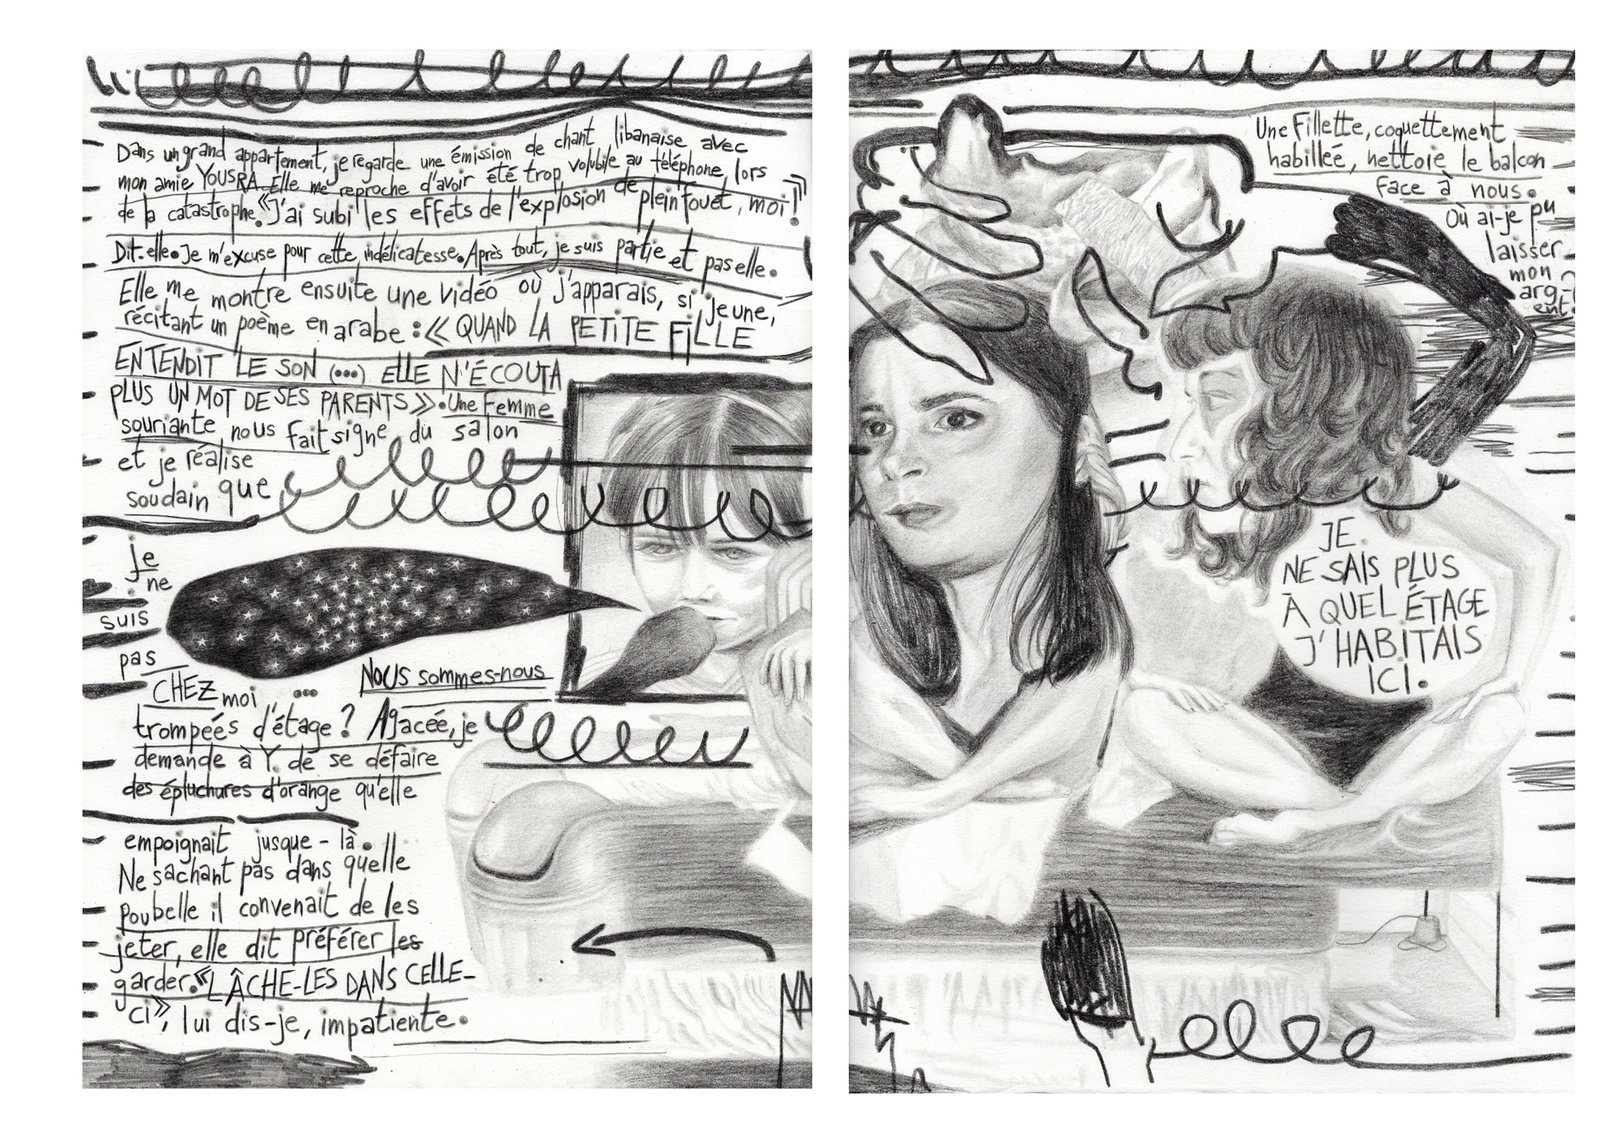 Dans un grand appartement, je regarde une émission de chant libanaise, avec
mon amie YOUSRA. Elle me reproche d'avoir été trop volubile au téléphone, lors
de la catastrophe. «J'ai subi les effets de l'explosion de plein fouet, moi!»
Dit-elle. Je m'excuse pour cette indélicatesse. Après tout, je suis partie et pas elle.
Elle me montre ensuite une vidéo où j'apparais, si jeune,
récitant un poème en arabe : « QUAND LA PETITE FILLE
ENTENDIT LE SON (...) ELLE N'ÉCOUTA
PLUS UN MOT DE SES PARENTS ». Une femme
souriante nous fait signe du salon
et je réalise
soudain que
je
ne
suis
pas
CHEZ moi ... Nous sommes-nous
trompées d'étage ? Agacée, je
demande à Y. de se défaire
des épluchures d'orange qu'elle
empoignait jusque-là.
Ne sachant pas dans quelle
poubelle il convenait de les
jeter, elle dit préférer les
garder. «LÂCHE-LES DANS CELLE-
CI», lui dis-je, impatiente.
Une fillette, coquettement
habillée, nettoie le balcon
face à nous.
Où ai-je pu
laisser
mon
arg-
ent.
JE
NE SAIS PLUS
À QUEL ÉTAGE
J'HABITAIS
ICI.